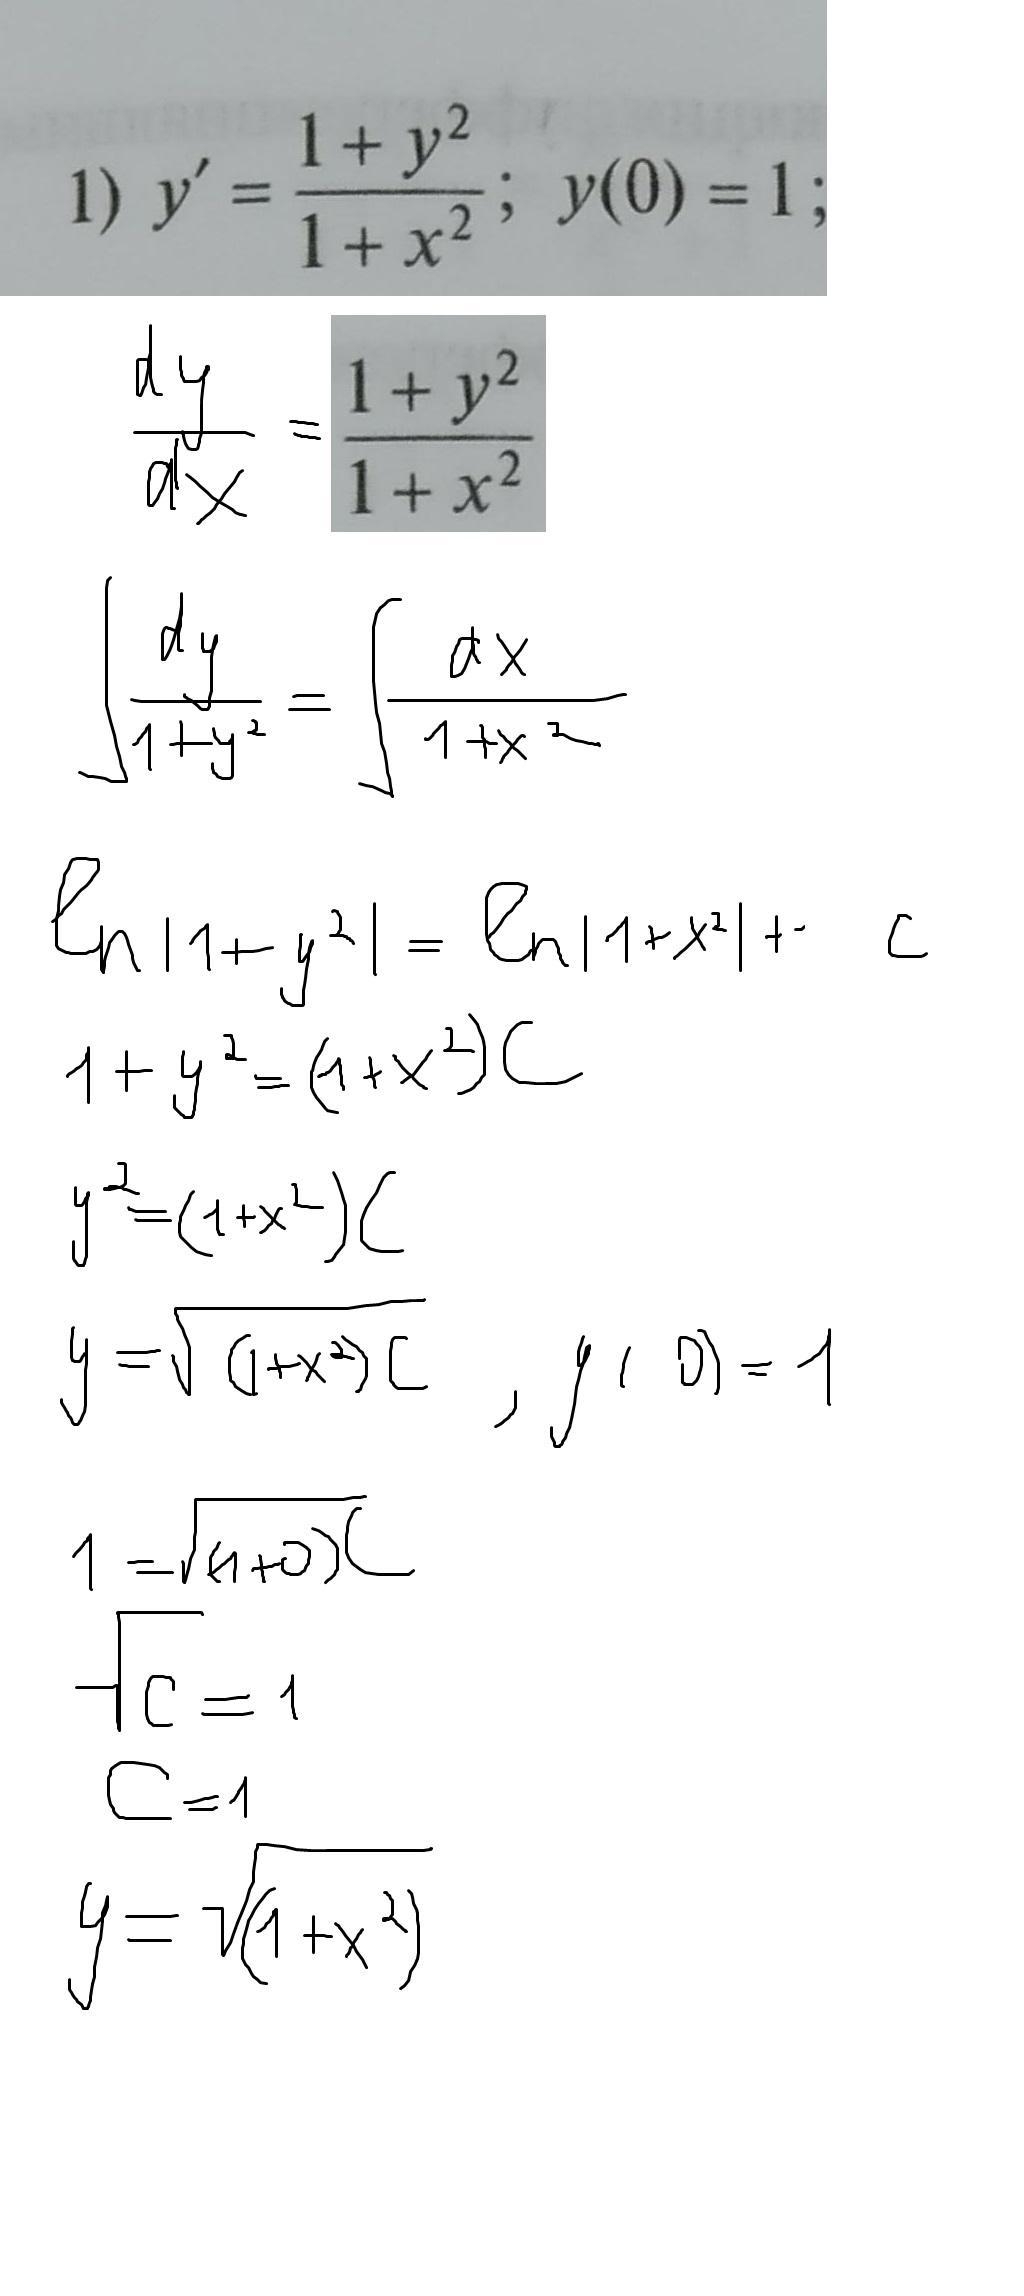 1) y′ = (1 + y²)/(1 + x²); y(0) = 1;
dy/dx = (1 + y²)/(1 + x²)
∫ dy/(1+y²) = ∫ dx/(1+x²)
ln|1+y²| = ln|1+x²| + C
1+y² = (1+x²)C
y² = (1+x²)C
y = √((1+x²)C) , y(0) = 1
1 = √((1+0)C)
√C = 1
C = 1
y = √(1+x²)